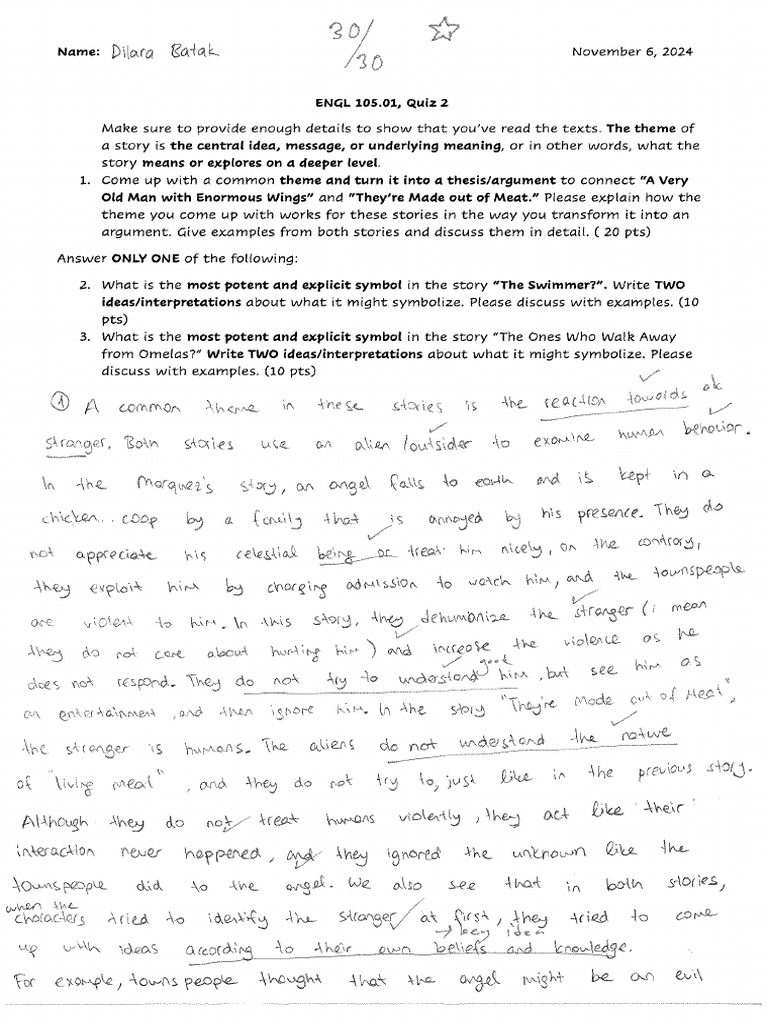 30/30 ☆
Name: Dilara Batak November 6, 2024
ENGL 105.01, Quiz 2
Make sure to provide enough details to show that you've read the texts. The theme of
a story is the central idea, message, or underlying meaning, or in other words, what the
story means or explores on a deeper level.
1. Come up with a common theme and turn it into a thesis/argument to connect "A Very
Old Man with Enormous Wings" and "They're Made out of Meat." Please explain how the
theme you come up with works for these stories in the way you transform it into an
argument. Give examples from both stories and discuss them in detail. ( 20 pts)
Answer ONLY ONE of the following:
2. What is the most potent and explicit symbol in the story "The Swimmer?". Write TWO
ideas/interpretations about what it might symbolize. Please discuss with examples. (10
pts)
3. What is the most potent and explicit symbol in the story "The Ones Who Walk Away
from Omelas?" Write TWO ideas/interpretations about what it might symbolize. Please
discuss with examples. (10 pts)
① A common theme in these stories is the reaction towards ok
stranger. Both stories use an alien/outsider to examine human behavior.
In the Marquez's story, an angel falls to earth and is kept in a
chicken.. coop by a family that is annoyed by his presence. They do
not appreciate his celestial being or treat him nicely, on the contrary,
they exploit him by charging admission to watch him, and the townspeople
are violent to him. In this story, they dehumanize the stranger (i mean
they do not care about hurting him) and increase the violence as he
does not respond. They do not try to understand him, but see him as
good
an entertainment, and then ignore him. In the story "They're Made out of Meat",
the stranger is humans. The aliens do not understand the nature
of "living meat", and they do not try to, just like in the previous story.
Although they do not treat humans violently, they act like their
interaction never happened, and they ignored the unknown like the
townspeople did to the angel. We also see that in both stories,
when the
characters tried to identify the stranger at first, they tried to come
→ key idea
up with ideas according to their own beliefs and knowledge.
For example, townspeople thought that the angel might be an evil